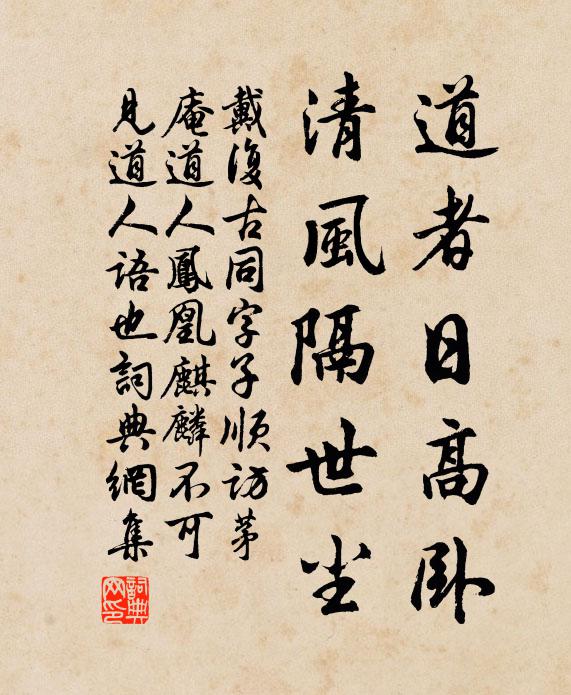 道者日高卧
清風隔世尘
戴復古同字子順訪茅
庵道人鳳凰麒麟不可
見道人語也詞典網集
詞典
网印